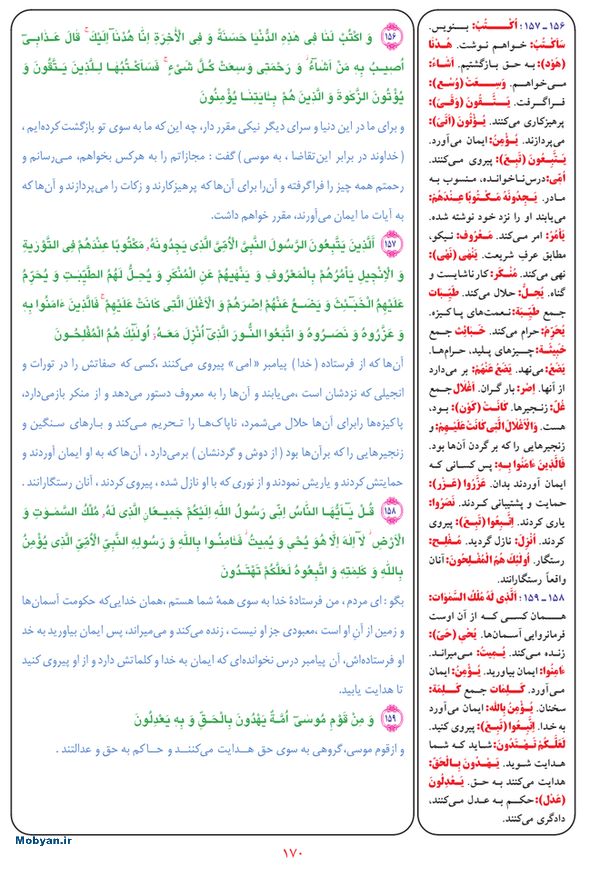 ۱۵۶ ـ ۱۵۷ : اُکْتُبْ: بنویس.
سَاَکْتُبُ: خواهم نوشت. هُدْنَا
(هَوَدَ): به حق بازگشتیم. اَشَاءُ:
می‌خواهم. وَسِعَتْ (وَسِعَ):
فراگرفت. یَتَّقُونَ (وَقَیَ):
پرهیزکاری می‌کنند. یُؤْتُونَ (اَتَیَ):
می‌پردازند. یُؤْمِنُ: ایمان می‌آورد.
یَتَّبِعُونَ (تَبِعَ): پیروی می‌کنند.
اُمِّی: درس‌ناخوانده، منسوب به
مادر. یَجِدُونَهُ مَکْتُوبًا عِنْدَهُمْ:
می‌یابند او را نزد خود نوشته شده.
یَأمُرُ: امر می‌کند. مَعْرُوف: نیکو،
مطابق عرف شریعت. یَنْهَی (نَهَیَ):
نهی می‌کند. مُنْکَر: کار ناشایست و
گناه. یُحِلُّ: حلال می‌کند. طَیِّبَات
جمع طَیِّبَة: نعمت‌های پاکیزه.
یُحَرِّمُ: حرام می‌کند. خَبَائِث جمع
خَبِیثَة: چیزهای پلید، حرام‌ها.
یَضَعُ: می‌نهد. یَضَعُ عَنْهُمْ: بر می‌دارد
از آنها. اِصْر: بار گران. اَغْلَال جمع
غُلّ: زنجیرها. کَانَتْ (کَوَنَ): بود،
هست. وَالْاَغْلَالَ الَّتِی کَانَتْ عَلَیْهِمْ: و
زنجیرهایی را که بر گردن آن‌ها بود.
فَالَّذِینَ ءَامَنُوا بِهِ: پس کسانی که
ایمان آوردند بدان. عَزَّرُوا (عَزَرَ):
حمایت و پشتیبانی کردند. نَصَرُوا:
یاری کردند. اِتَّبَعُوا (تَبِعَ): پیروی
کردند. اُنْزِلَ: نازل گردید. مُفْلِح:
رستگار. اُولٰئِکَ هُمُ الْمُفْلِحُونَ: آنان
واقعاً رستگارانند.
۱۵۸ ـ ۱۵۹ : اَلَّذِی لَهُ مُلْکُ السَّمَوَاتِ:
همان کسی که از آن اوست
فرمانروایی آسمان‌ها. یُحْیِ (حَیَیَ):
زنده می‌کند. یُمِیتُ: می‌میراند.
ءَامِنُوا: ایمان بیاورید. یُؤْمِنُ: ایمان
می‌آورد. کَلِمَات جمع کَلِمَة:
سخنان. یُؤْمِنُ بِاللهِ: ایمان می‌آورد
به خدا. اِتَّبِعُوا (تَبِعَ): پیروی کنید.
لَعَلَّکُمْ تَهْتَدُونَ: شاید که شما
هدایت شوید. یَهْدُونَ بِالْحَقِّ:
هدایت می‌کنند به حق. یَعْدِلُونَ
(عَدَلَ): حکم به عدل می‌کنند،
دادگری می‌کنند.
۱۵۶ وَ اکْتُبْ لَنَا فِی هَذِهِ الدُّنْیَا حَسَنَةً وَ فِی الْأَخِرَةِ إِنَّا هُدْنَآ إِلَیْکَ ۚ قَالَ عَذَابِیٓ
أُصِیبُ بِهِ مَنْ أَشَآءُ ۖ وَ رَحْمَتِی وَسِعَتْ کُلَّ شَیْءٍ ۚ فَسَأَکْتُبُهَا لِلَّذِینَ یَتَّقُونَ وَ
یُؤْتُونَ الزَّکَوةَ وَ الَّذِینَ هُمْ بِـَٔایَتِنَا یُؤْمِنُونَ
و برای ما در این دنیا و سرای دیگر نیکی مقرر دار، چه این که ما به سوی تو بازگشت کرده‌ایم ،
( خداوند در برابر این‌تقاضا ، به موسی ) گفت : مجازاتم را به هرکس بخواهم، می‌رسانم و
رحمتم همه چیز را فراگرفته و آن‌را برای آن‌ها که پرهیزکارند و زکات را می‌پردازند و آن‌ها که
به آیات ما ایمان می‌آورند، مقرر خواهم داشت.
۱۵۷ اَلَّذِینَ یَتَّبِعُونَ الرَّسُولَ النَّبِیَّ الْأُمِّیَّ الَّذِی یَجِدُونَهُ, مَکْتُوبًا عِنْدَهُمْ فِی التَّوْرَیةِ
وَ الْإِنْجِیلِ یَأْمُرُهُمْ بِالْمَعْرُوفِ وَ یَنْهَیهُمْ عَنِ الْمُنْکَرِ وَ یُحِلُّ لَهُمُ الطَّیِّبَتِ وَ یُحَرِّمُ
عَلَیْهِمُ الْخَبَـٰٓئِثَ وَ یَضَعُ عَنْهُمْ إِصْرَهُمْ وَ الْأَغْلَلَ الَّتِی کَانَتْ عَلَیْهِمْ ۚ فَالَّذِینَ ءَامَنُوا بِهِ
وَ عَزَّرُوهُ وَ نَصَرُوهُ وَ اتَّبَعُوا النُّورَ الَّذِیٓ أُنْزِلَ مَعَهُ, أُولَـٰٓئِکَ هُمُ الْمُفْلِحُونَ
آن‌ها که از فرستاده ( خدا ) پیامبر « امی » پیروی می‌کنند ،کسی که صفاتش را در تورات و
انجیلی که نزدشان است ،می‌یابند و آن‌ها را به معروف دستور می‌دهد و از منکر بازمی‌دارد،
پاکیزه‌ها رابرای آن‌ها حلال می‌شمرد، ناپاک‌هـا را تـحریـم می‌کند و بارهای سنگین و
زنجیرهایی را که برآن‌ها بود ( از دوش و گردنشان ) برمی‌دارد ، آن‌ها که به او ایمان آوردند و
حمایتش کردند و یاریش نمودند و از نوری که با او نازل شده ، پیروی کردند ، آنان رستگارانند .
۱۵۸ قُلْ یَـٰٓأَیُّهَا النَّاسُ إِنِّی رَسُولُ اللهِ إِلَیْکُمْ جَمِیعًا الَّذِی لَهُ, مُلْکُ السَّمَوَتِ وَ
الْأَرْضِ ۖ لَآ إِلَهَ إِلَّا هُوَ یُحْیِ وَ یُمِیتُ ۖ فَـَٔامِنُوا بِاللهِ وَ رَسُولِهِ النَّبِیِّ الْأُمِّیِّ الَّذِی یُؤْمِنُ
بِاللهِ وَ کَلِمَتِهِ وَ اتَّبِعُوهُ لَعَلَّکُمْ تَهْتَدُونَ
بگو : ای مردم ، من فرستادهٔ خدا به سوی همهٔ شما هستم ،همان خدایی‌که حکومت آسمان‌ها
و زمین از آنِ او است ،معبودی جز او نیست ، زنده می‌کند و می‌میراند، پس ایمان بیاورید به خد
او فرستاده‌اش، آن پیامبر درس نخوانده‌ای که ایمان به خدا و کلماتش دارد و از او پیروی کنید
تا هدایت یابید.
۱۵۹ وَ مِنْ قَوْمِ مُوسَیٓ أُمَّةٌ یَهْدُونَ بِالْحَقِّ وَ بِهِ یَعْدِلُونَ
و ازقوم موسی، گروهی به سوی حق هدایت می‌کننـد و حـاکم به حق و عدالتند .
Mobyan.ir
۱۷۰